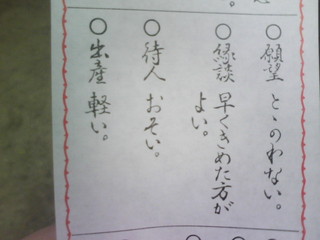 ○願望 とゝのわない。
○縁談 早くきめた方が
よい。
○待人 おそい。
○出産 軽い。